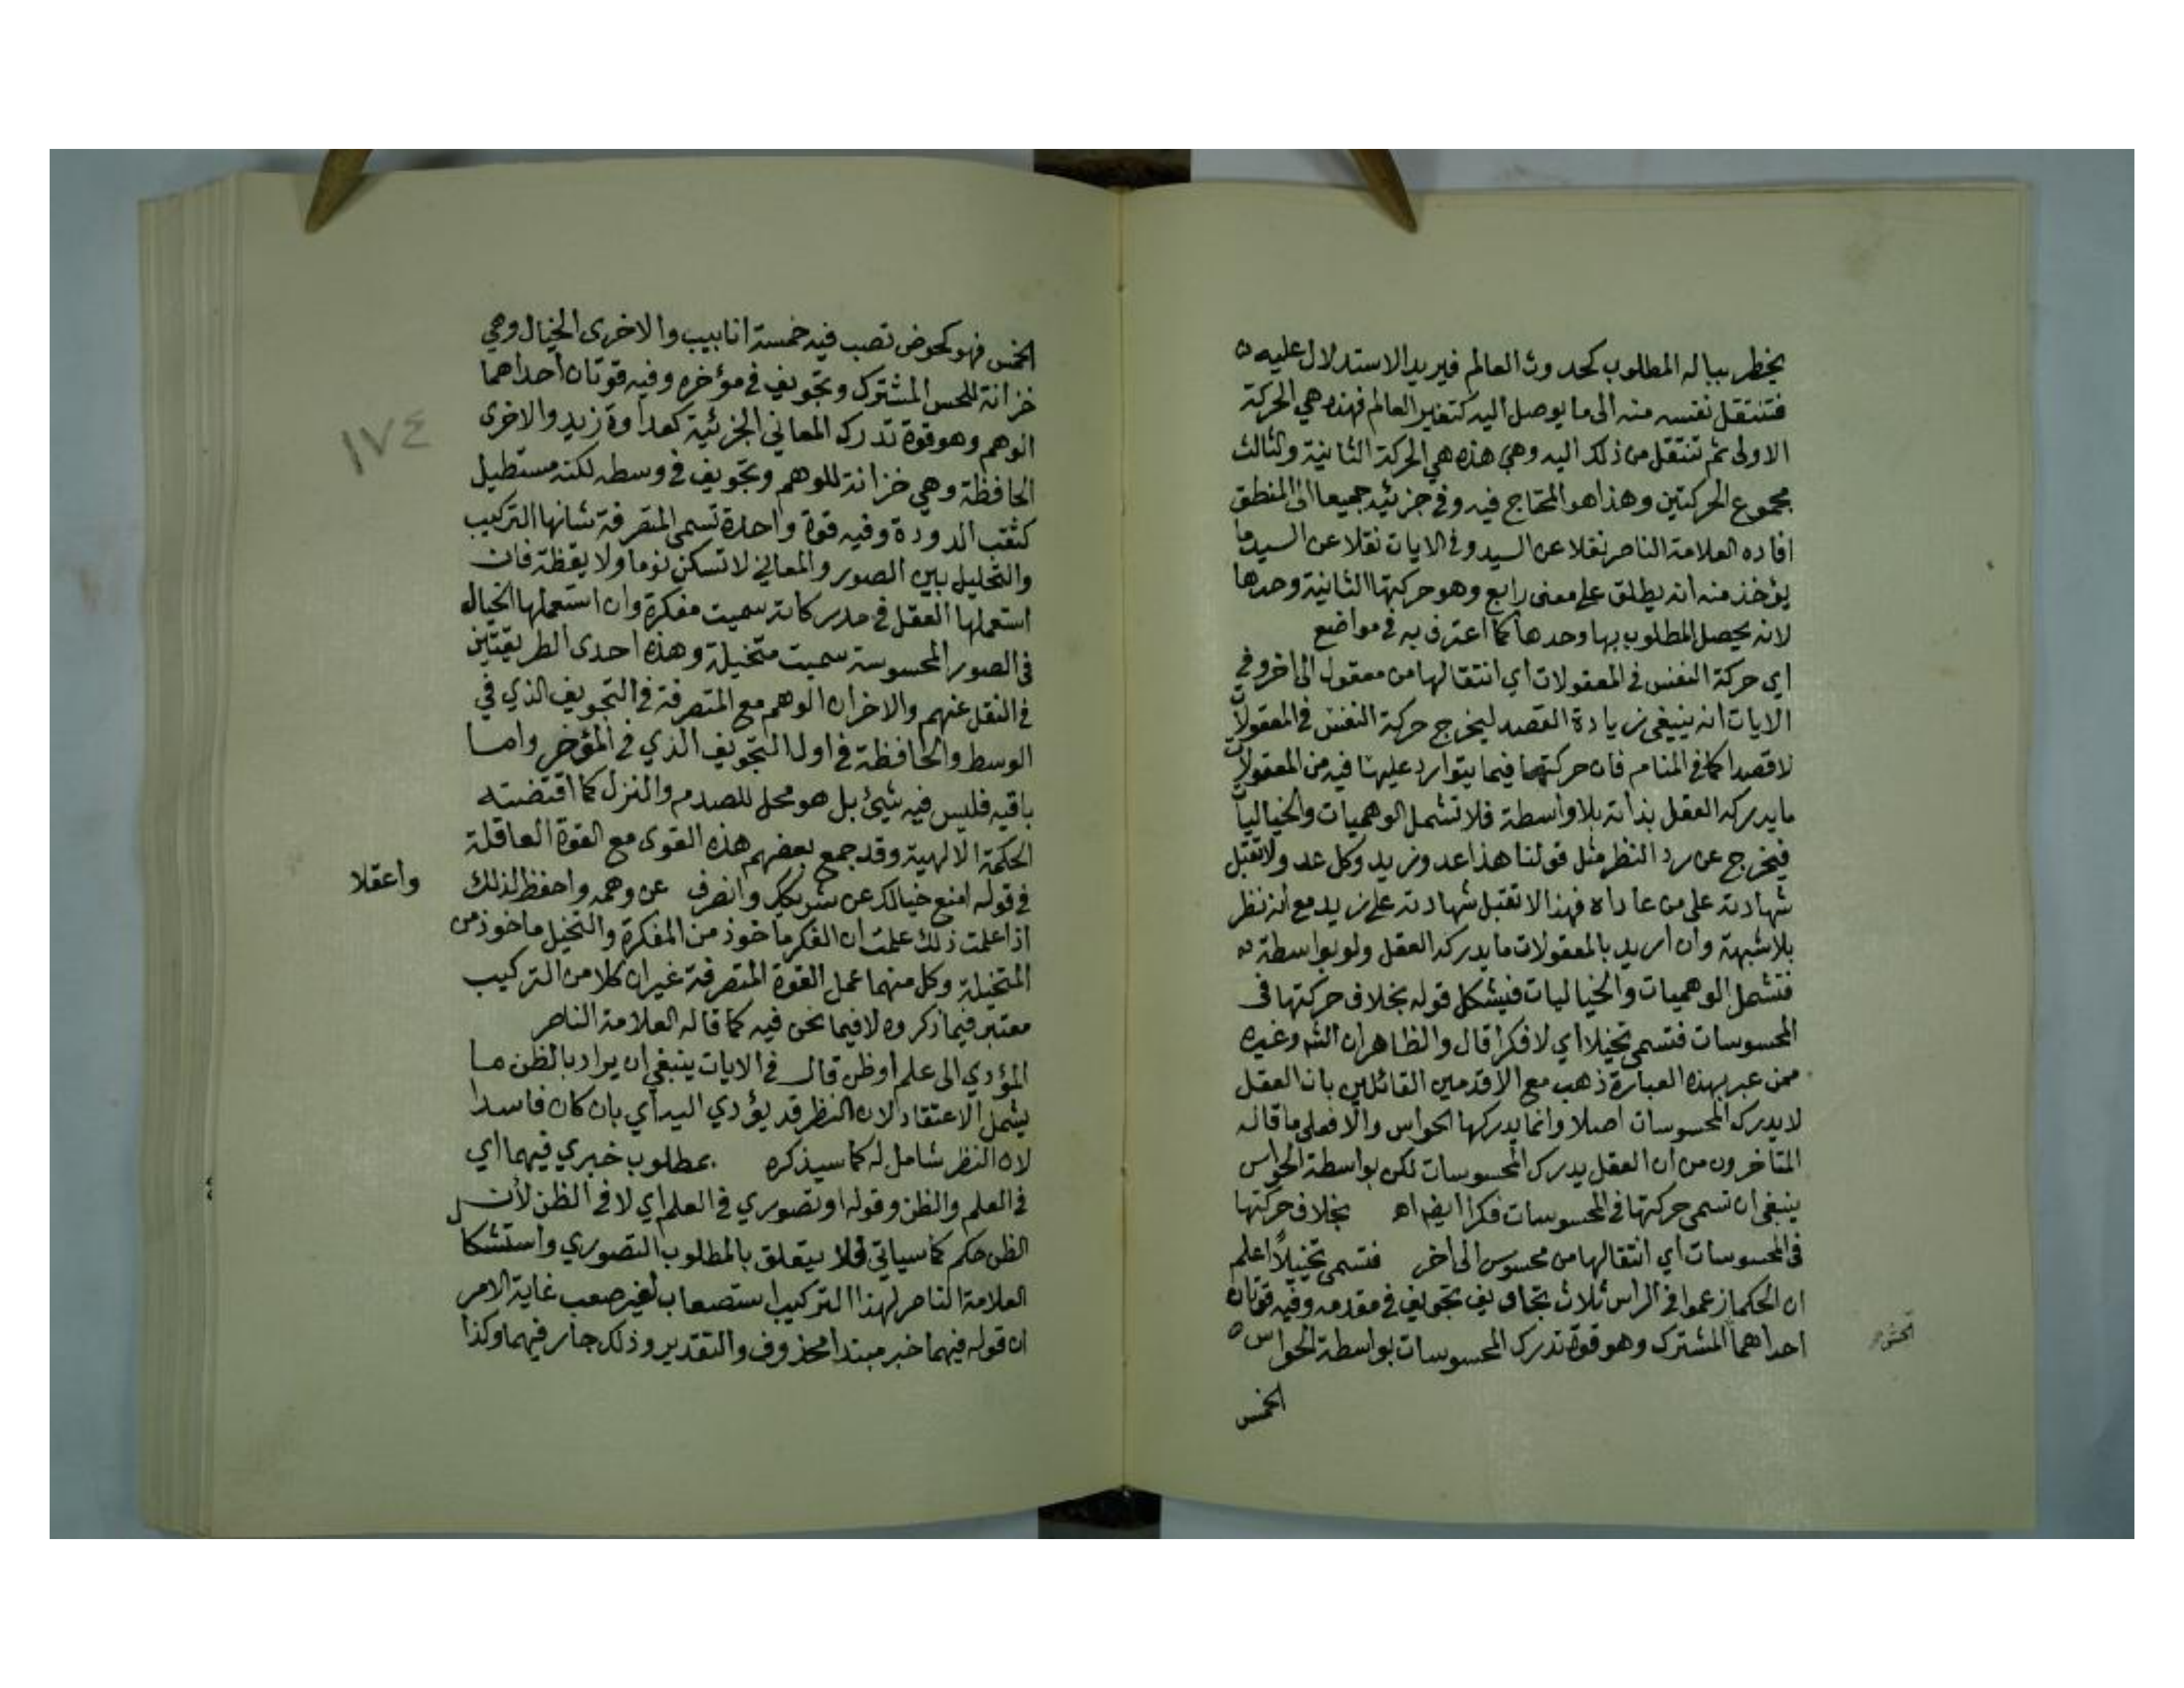 يخطر بباله المطلوب كحدوث العالم فيريد الاستدلال عليه
فتنتقل نفسه منه الى ما يوصل اليه كتغير العالم فهذه هي الحركة
الاولى ثم تنتقل من ذلك اليه وهي هذه هي الحركة الثانية والثالث
مجموع الحركتين وهذا هو المحتاج فيه وفي جزئيه جميعا الى المنطق
افاده العلامة الناصر نقلا عن السيد وفي الايات نقلا عن السيد ما
يؤخذ منه انه يطلق على معنى رابع وهو حركتها الثانية وحدها
لانه يحصل المطلوب بها وحدها كما اعترف به في مواضع
اي حركة النفس في المعقولات اي انتقالها من معقول الى اخر وفي
الايات انه ينبغي زيادة القصد ليخرج حركة النفس في المعقولات
لا قصدا كما في المنام فان حركتها فيما يتوارد عليها فيه من المعقولات
ما يدركه العقل بذاته بلا واسطة فلا تشمل الوهميات والخياليات
فيخرج عن رد النظر مثل قولنا هذا عدو زيد وكل عدو لا تقبل
شهادته على من عاداه فهذا لا تقبل شهادته على زيد مع انه نظر
بلا شبهة وان اريد بالمعقولات ما يدركه العقل ولو بواسطة
فتشمل الوهميات والخياليات فيشكل قوله بخلاف حركتها في
المحسوسات فتسمى تخيلا اي لا فكرا قال والظاهر ان الشه وغيره
ممن عبر بهذه العبارة ذهب مع الاقدمين القائلين بان العقل
لا يدرك المحسوسات اصلا وانما يدركها الحواس والا فعلى ما قاله
المتاخرون من ان العقل يدرك المحسوسات لكن بواسطة الحواس
ينبغي ان تسمى حركتها في المحسوسات فكرا ايضا اه بخلاف حركتها
في المحسوسات اي انتقالها من محسوس الى اخر فتسمى تخييلا اعلم
ان الحكما زعموا في الراس ثلاث تجاويف تجويف في مقدمه وفيه قوتان
احداهما المشترك وهو قوة تدرك المحسوسات بواسطة الحواس
الخمس
الخمس فهو كحوض تصب فيه خمسة انابيب والاخرى الخيال وهي
خزانة للحس المشترك وتجويف في مؤخره وفيه قوتان احداهما
الوهم وهو قوة تدرك المعاني الجزئية كعداوة زيد والاخرى
١٧٤
الحافظة وهي خزانة للوهم وتجويف في وسطه لكنه مستطيل
كثقب الدودة وفيه قوة واحدة تسمى المتصرفة شانها التركيب
والتحليل بين الصور والمعاني لا تسكن نوما ولا يقظة فان
استعملها العقل في مدركاته سميت مفكرة وان استعملها الخيال
في الصور المحسوسة سميت متخيلة وهذه احدى الطريقتين
في النقل عنهم والاخر ان الوهم مع المتصرفة في التجويف الذي في
الوسط والحافظة في اول التجويف الذي في المؤخر واما
باقيه فليس فيه شيئ بل هو محل للصدم والنزل كما اقتضته
الحكمة الالهية وقد جمع بعضهم هذه القوى مع القوة العاقلة
في قوله امنع خيالك عن شريكك وانصرف عن وهمه واحفظ لذلك
واعقلا
اذا علمت ذلك علمت ان الفكر ماخوذ من المفكرة والتخيل ماخوذ من
المتخيلة وكل منهما عمل القوة المتصرفة غير ان كلا من التركيب
معتبر فيما ذكروه لا فيما نحن فيه كما قاله العلامة الناصر
المؤدي الى علم او ظن قال في الايات ينبغي ان يراد بالظن ما
يشمل الاعتقاد لان النظر قد يؤدي اليه اي بان كان فاسدا
لان النظر شامل له كما سيذكره بمطلوب خبري فيهما اي
في العلم والظن وقوله او تصوري في العلم اي لا في الظن لأن
الظن حكم كما سياتي فلا يتعلق بالمطلوب التصوري واستشكال
العلامة الناصر لهذا التركيب استصعاب لغير صعب غاية الامر
ان قوله فيهما خبر مبتدا محذوف والتقدير وذلك جار فيهما وكذا